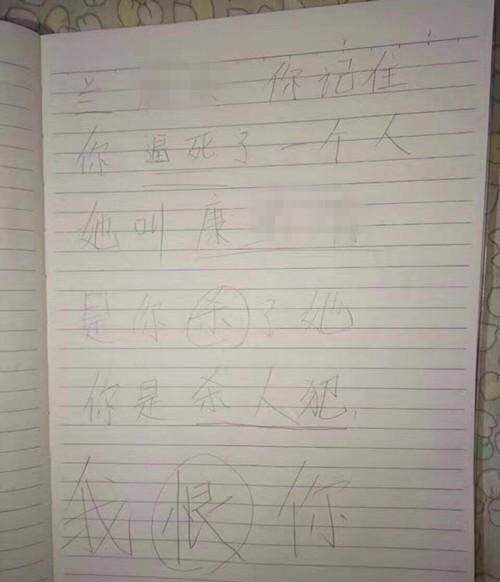 兰 你记住
你逼死了一个人
她叫康
是你杀了她
你是杀人犯.
我恨你